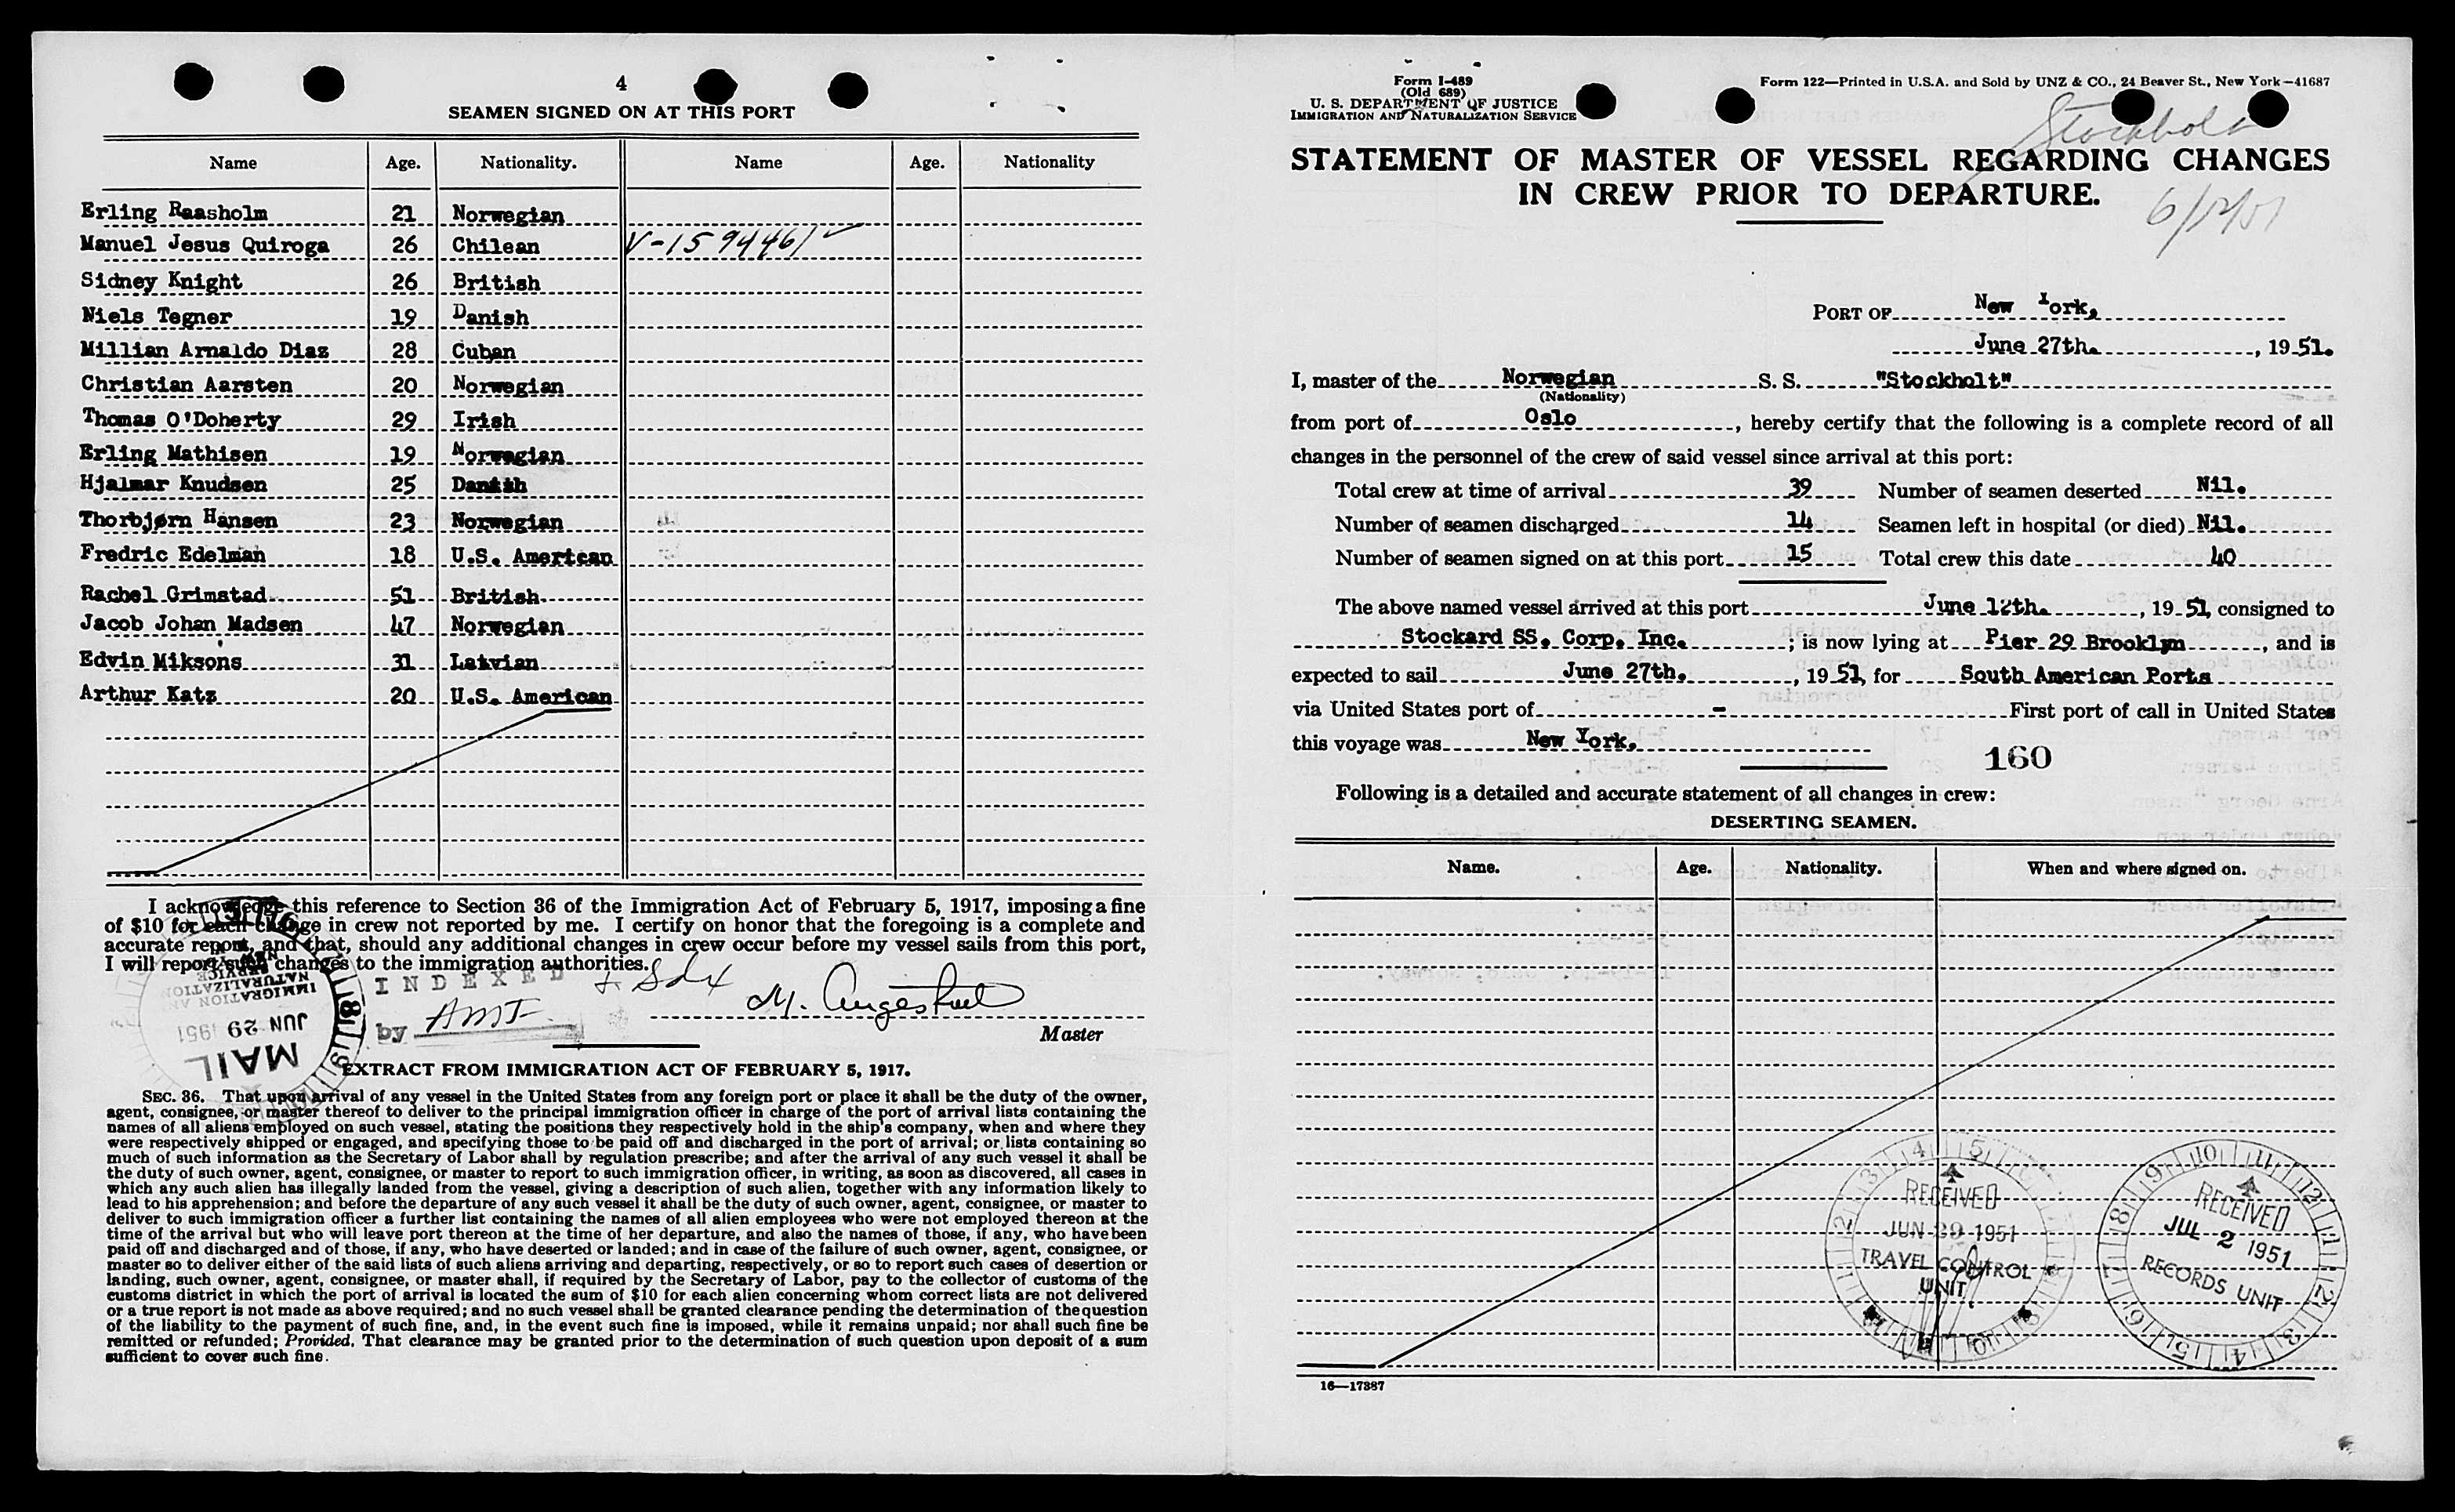 4
SEAMEN SIGNED ON AT THIS PORT
Name Age. Nationality. Name Age. Nationality
Erling Raasholm 21 Norwegian
Manuel Jesus Quiroga 26 Chilean V-1594461
Sidney Knight 26 British
Niels Tegner 19 Danish
Millian Arnaldo Diaz 28 Cuban
Christian Aarsten 20 Norwegian
Thomas O'Doherty 29 Irish
Erling Mathisen 19 Norwegian
Hjalmar Knudsen 25 Danish
Thorbjørn Hansen 23 Norwegian
Fredric Edelman 18 U.S. American
Rachel Grimstad 51 British
Jacob Johan Madsen 47 Norwegian
Edvin Miksons 31 Latvian
Arthur Katz 20 U.S. American
I acknowledge this reference to Section 36 of the Immigration Act of February 5, 1917, imposing a fine
of $10 for each change in crew not reported by me. I certify on honor that the foregoing is a complete and
accurate report, and that, should any additional changes in crew occur before my vessel sails from this port,
I will report such changes to the immigration authorities.
IMMIGRATION AND
NATURALIZATION
SERVICE
JUN 29 1951
MAIL
INDEXED
by
M.
Master
EXTRACT FROM IMMIGRATION ACT OF FEBRUARY 5, 1917.
SEC. 36. That upon arrival of any vessel in the United States from any foreign port or place it shall be the duty of the owner,
agent, consignee, or master thereof to deliver to the principal immigration officer in charge of the port of arrival lists containing the
names of all aliens employed on such vessel, stating the positions they respectively hold in the ship's company, when and where they
were respectively shipped or engaged, and specifying those to be paid off and discharged in the port of arrival; or lists containing so
much of such information as the Secretary of Labor shall by regulation prescribe; and after the arrival of any such vessel it shall be
the duty of such owner, agent, consignee, or master to report to such immigration officer, in writing, as soon as discovered, all cases in
which any such alien has illegally landed from the vessel, giving a description of such alien, together with any information likely to
lead to his apprehension; and before the departure of any such vessel it shall be the duty of such owner, agent, consignee, or master to
deliver to such immigration officer a further list containing the names of all alien employees who were not employed thereon at the
time of the arrival but who will leave port thereon at the time of her departure, and also the names of those, if any, who have been
paid off and discharged and of those, if any, who have deserted or landed; and in case of the failure of such owner, agent, consignee, or
master so to deliver either of the said lists of such aliens arriving and departing, respectively, or so to report such cases of desertion or
landing, such owner, agent, consignee, or master shall, if required by the Secretary of Labor, pay to the collector of customs of the
customs district in which the port of arrival is located the sum of $10 for each alien concerning whom correct lists are not delivered
or a true report is not made as above required; and no such vessel shall be granted clearance pending the determination of the question
of the liability to the payment of such fine, and, in the event such fine is imposed, while it remains unpaid; nor shall such fine be
remitted or refunded; Provided, That clearance may be granted prior to the determination of such question upon deposit of a sum
sufficient to cover such fine.
Form I-489
(Old 689)
U. S. DEPARTMENT OF JUSTICE
IMMIGRATION AND NATURALIZATION SERVICE
Form 122—Printed in U.S.A. and Sold by UNZ & CO., 24 Beaver St., New York—41687
Stockholt
STATEMENT OF MASTER OF VESSEL REGARDING CHANGES
IN CREW PRIOR TO DEPARTURE.
6/12/51
PORT OF New York,
June 27th. , 19 51.
I, master of the Norwegian S. S. "Stockholt"
(Nationality)
from port of Oslo , hereby certify that the following is a complete record of all
changes in the personnel of the crew of said vessel since arrival at this port:
Total crew at time of arrival 39 Number of seamen deserted Nil.
Number of seamen discharged 14 Seamen left in hospital (or died) Nil.
Number of seamen signed on at this port 15 Total crew this date 40
The above named vessel arrived at this port June 12th. , 19 51, consigned to
Stockard SS. Corp. Inc. ; is now lying at Pier 29 Brooklyn , and is
expected to sail June 27th. , 19 51, for South American Ports
via United States port of - First port of call in United States
this voyage was New York.
160
Following is a detailed and accurate statement of all changes in crew:
DESERTING SEAMEN.
Name. Age. Nationality. When and where signed on.
RECEIVED
JUN 29 1951
TRAVEL CONTROL
UNIT
RECEIVED
JUL 2 1951
RECORDS UNIT
16—17387